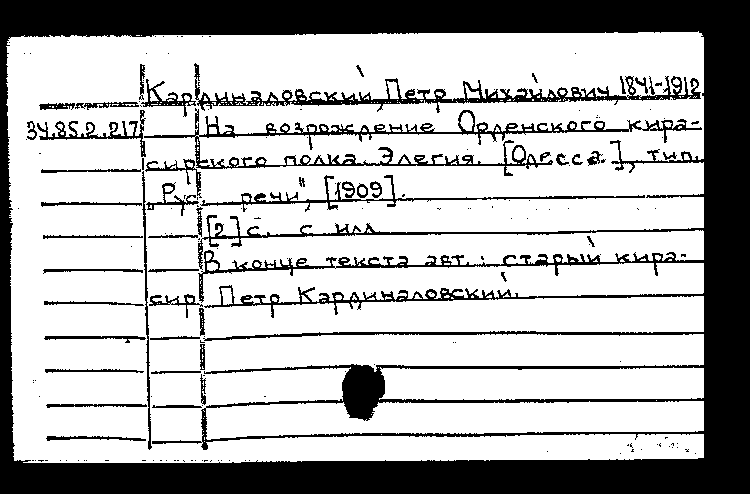 Кардиналовский, Петр Михайлович, 1841-1912.
34.85.2.217 На возрождение Орденского кира-
сирского полка. Элегия. [Одесса], тип.
„Рус. речи", [1909].
[2] с. с илл
В конце текста авт.: старый кира-
сир Петр Кардиналовский.